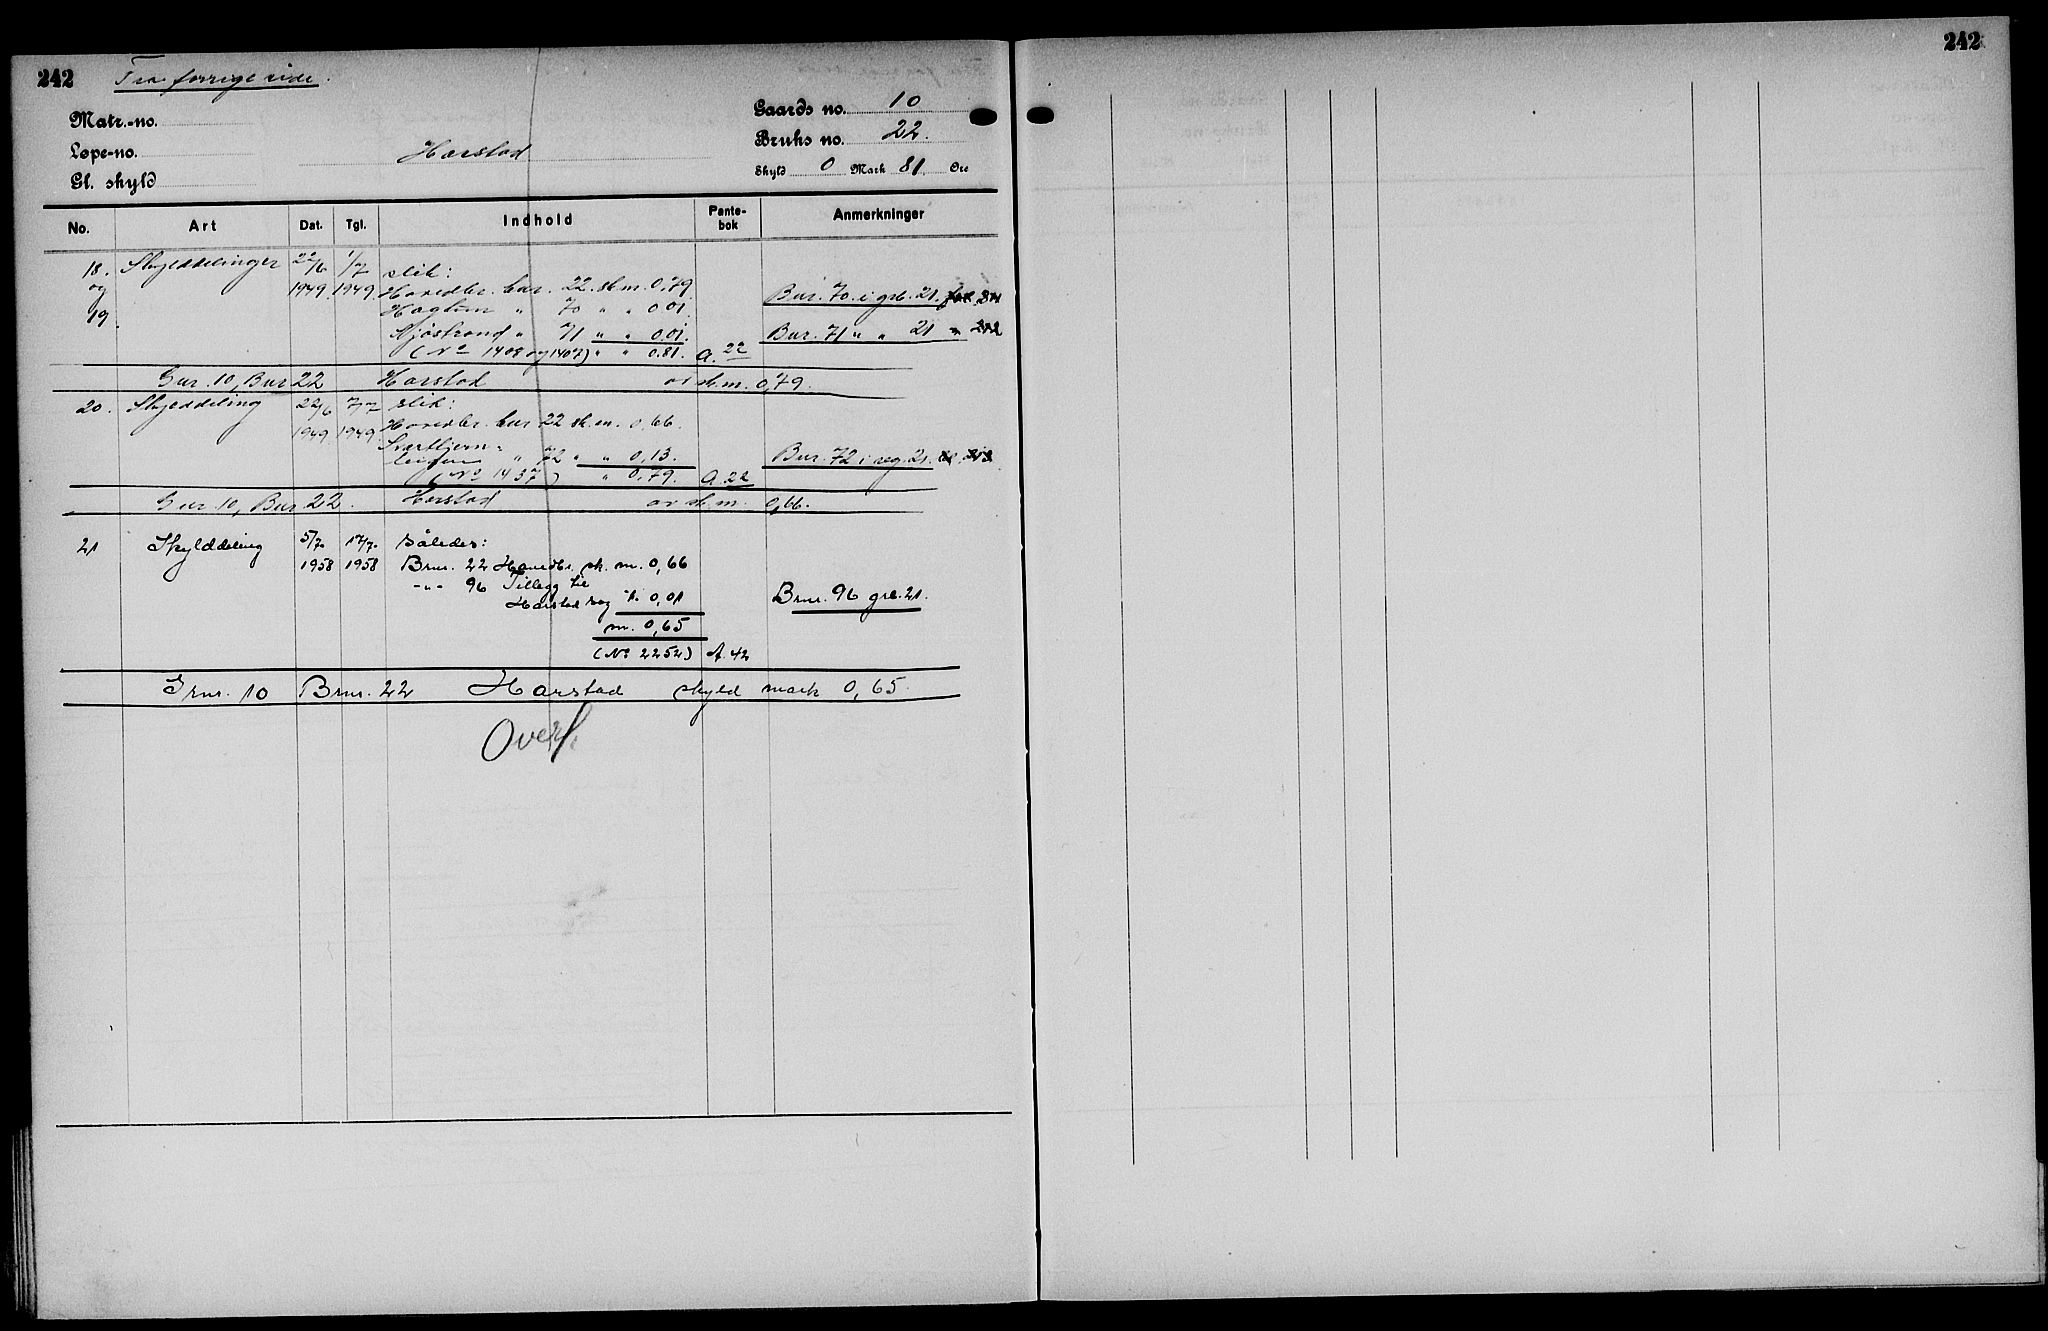 242 Fra forrige side. 242
Matr.-no.
Løpe-no.
Gl. skyld
Harstad
Gaards no. 10
Bruks no. 22.
Skyld 0 Mark 81 Øre
No. Art Dat. Tgl. Indhold Pante-bok Anmerkninger
18. Skylddelinger 22/6 1/7 slik:
og 1949 1949 Hovedbr. bnr. 22 sk.m. 0,79 Bnr. 70 i grb. 21
19. Haglum " 70 " " 0 01.
Mjøstrand " 71 " " 0,01. Bnr. 71 " " 21
(No 1408 og 1407) " " 0.81. A. 22
Gnr. 10, Bnr 22 Harstad av sk.m. 0,79.
20. Skylddeling 22/6 7/7 slik:
1949 1949 Hovedbr. bnr 22 sk.m. 0,66.
" 72 " " 0,13. Bnr. 72 i reg. 21.
(No 1437) " 0,79. A 22
Gnr. 10, Bnr 22. Harstad av sk.m. 0,66.
21 Skylddeling 5/7. 17/7. således:
1958 1958 Brnr. 22 Hovedbr. sk. m. 0,66
-"- 96 Tillegg til
Harstad ÷ 0,01 Brnr. 96 grb. 21.
m. 0,65
(No 2252) A. 42
Grnr. 10 Brnr. 22 Harstad skyld mark 0,65.
Overf.